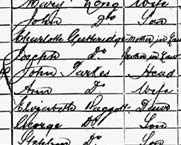 Mary Long Wife
John Do Son
Charlotte Gutheridge Mother in Law
Joseph Do
John Parkes Head
Ann Do Wife
Elizabeth Baggott Daur
George Do Son
Do Son